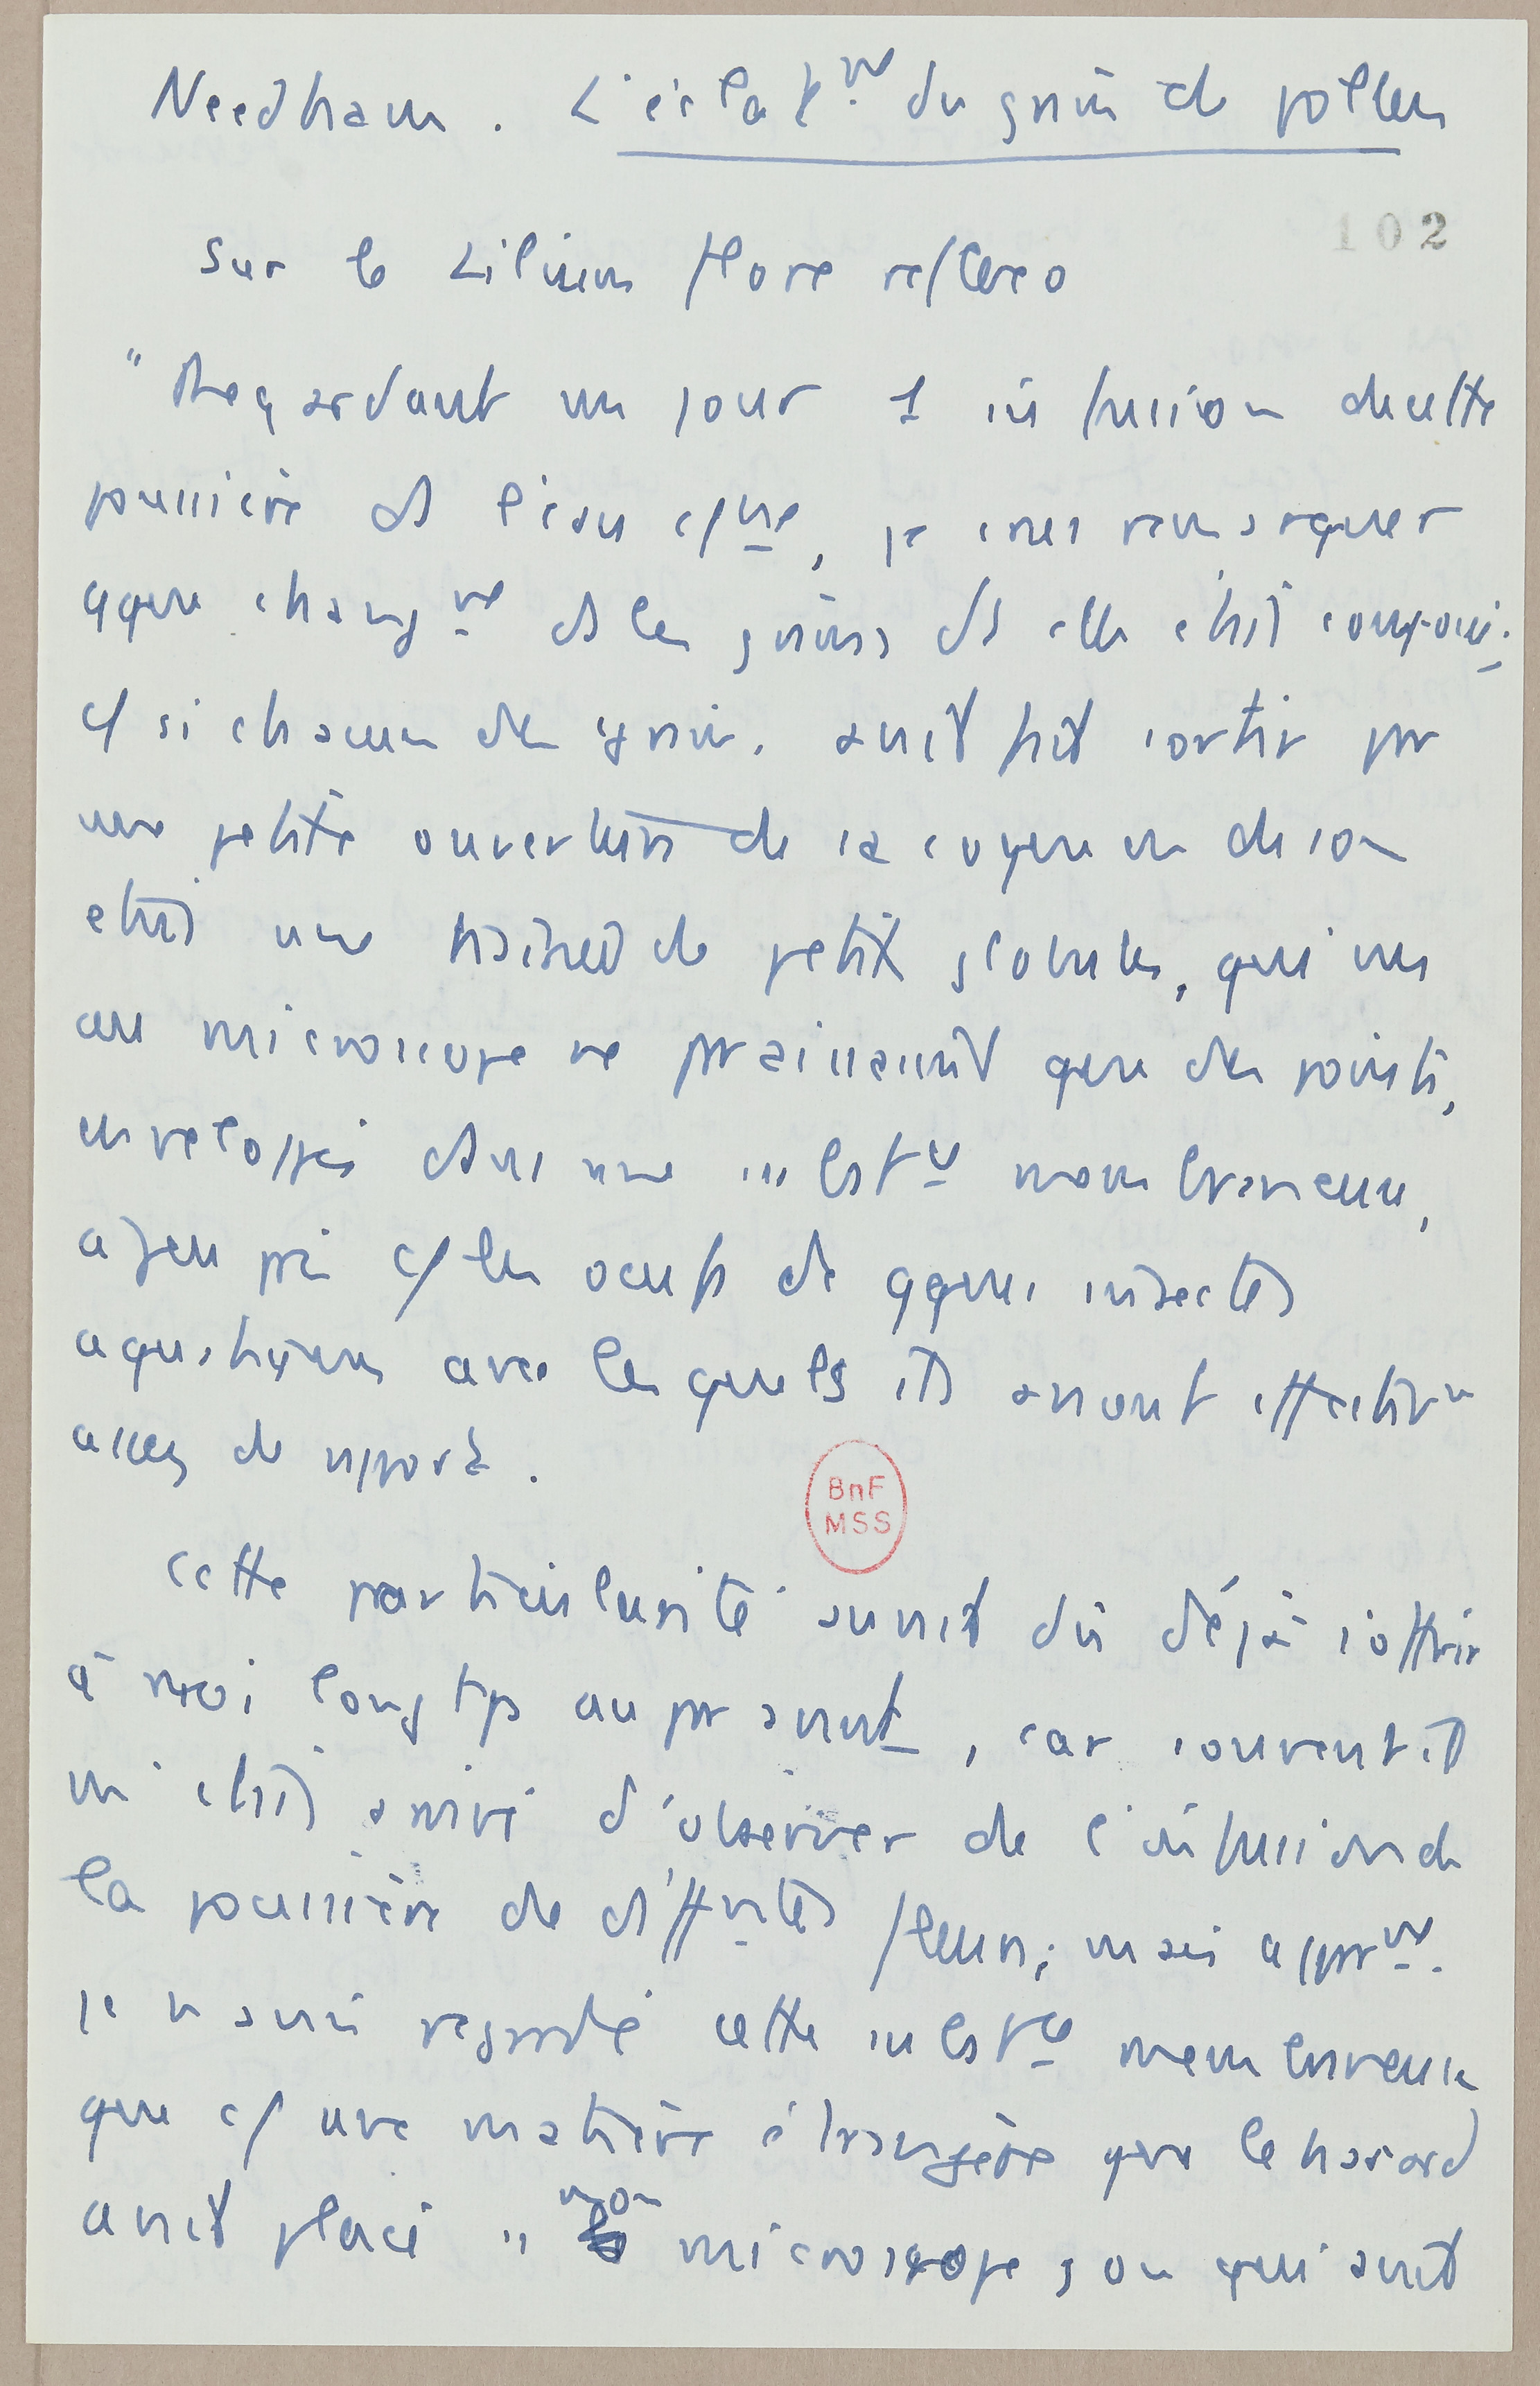 Needham. L'éclatt du grain de pollen
102
sur le Lilium flore reflexo
"Regardant un jour 1 infusion de cette
poussière ds l'eau c/me, je crus remarquer
qque changmt ds les grains dt elle était composée.
c/ si chacun des grains avait fait sortir par
une petite ouverture de sa coque ou de son
étui une traînée de petits globules, qui vus
au microscope ne paraissaient que des points,
enveloppés dans une subst. membraneuse,
à peu près c/ les oeufs de qques insectes
aquatiques avec lesquels ils avaient effectivt
assez de rapport.
BnF
MSS
Cette particularité aurait dû déjà s'offrir
à moi longtps auparavant, car souvent il
m'était arrivé d'observer de l'infusion de
la poussière de difftes fleurs; mais appmt.
je n'avais regardé cette subst. membraneuse
que c/ une matière étrangère que le hasard
avait placé ss mon microscope, ou qui avait